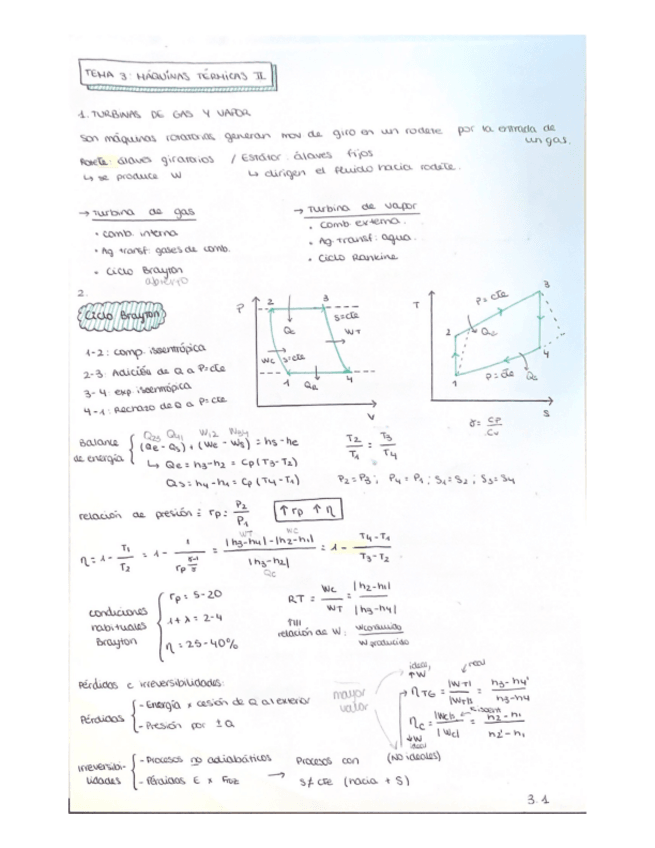 TEMA 3: MÁQUINAS TÉRMICAS II
1. TURBINAS DE GAS Y VAPOR
Son máquinas rotatorias generan mov de giro en un rodete por la entrada de un gas.
Rodete: álaves giratorios / Estátor: álaves fijos
↳ se produce W ↳ dirigen el fluido hacia rodete.
→ Turbina de gas
• Comb. interna
• Ag transf: gases de comb.
• Ciclo Brayton
abierto
→ Turbina de vapor
• Comb. externa.
• Ag. Transf: agua.
• Ciclo Rankine
2.
Ciclo Brayton
1-2: comp. isoentrópica
2-3: Adición de Q a P=cte
3-4: exp. isoentrópica
4-1: Rechazo de Q a P=cte
P 2 3 Qe S=cte WT Wc S=cte 1 Qs 4 V
T 3 P=cte 2 Qe 4 1 P=cte Qs S
γ = Cp/Cv
Balance de energía
Q23 Q41 W12 W34
(Qe - Qs) + (We - Ws) = hs - he
↳ Qe = h3-h2 = Cp (T3-T2)
Qs = h4-h1 = Cp (T4-T1)
T2/T1 = T3/T4
P2=P3 ; P4=P1 ; S1=S2 ; S3=S4
relación de presión: rp: P2/P1 ↑ rp ↑ η
η = 1 - T1/T2 = 1 - 1/rp^(γ-1/γ) = |h3-h4|-|h2-h1| / |h3-h2| = 1 - T4-T1/T3-T2
WT Wc
Qe
condiciones habituales Brayton
rp = 5-20
1+λ = 2-4
η = 25-40%
RT = Wc/WT = |h2-h1|/|h3-h4|
relación de W: Wconsumido/Wproducido
Pérdidas e irreversibilidades:
Pérdidas
- Energía x cesión de Q al exterior
- Presión por ΔQ
mayor valor
ideal, ↑W real
→ ηTG = |WT|/|WT|s = h3-h4'/h3-h4
ηc = |Wc|s/|Wc| = h2-h1/h2'-h1
↓W ideal
(NO ideales)
Irreversibilidades
- Procesos no adiabáticos
- Pérdidas E x Froz
→ Procesos con S≠cte (hacia + S)
3.1